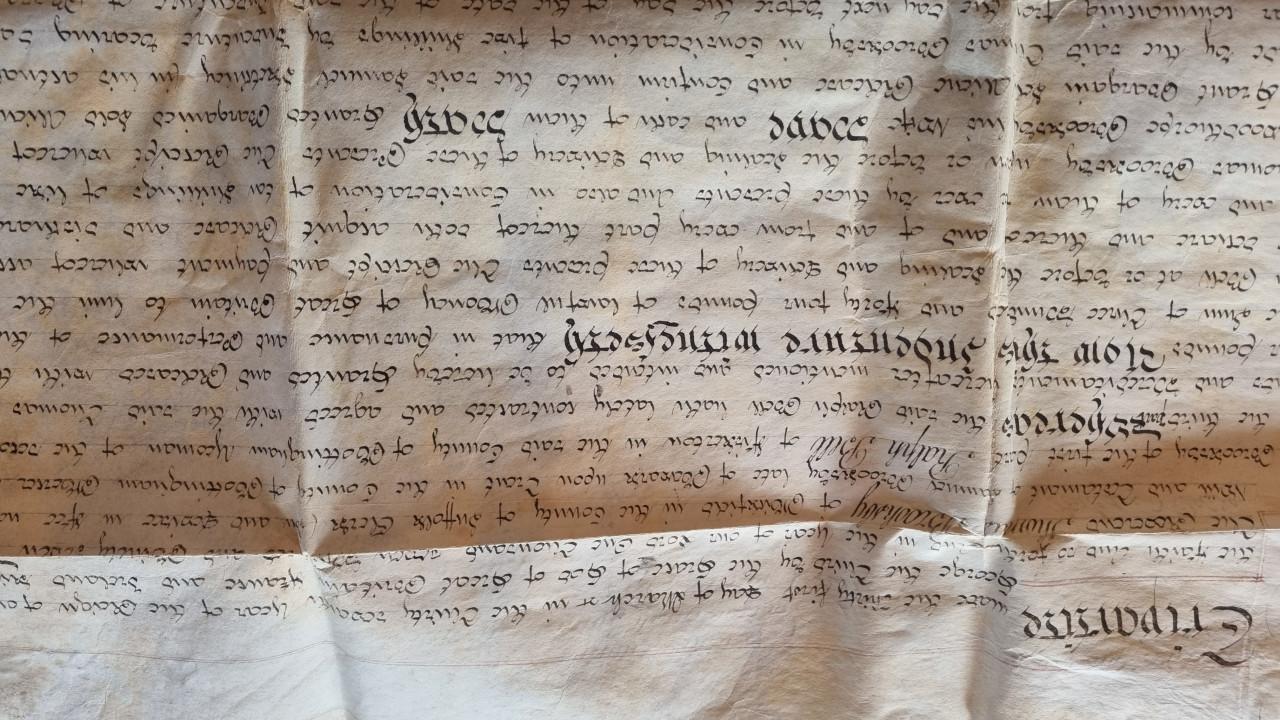 Tripartite made the Thirty first Day of March in the Thirty Year of the Reign of
George the Third by the Grace of God of Great Britain France and Ireland
the Faith and so forth and in the Year of our Lord One Thousand seven
The Reverend Thomas Brooksby of in the County of Suffolk Clerk and Devisee in Fee
Will and Testament Brooksby late of upon Trent in the County of Nottingham
Brooksby of the first part Ralph Bell of Fiskerton in the said County of Nottingham Yeoman of the
the third part Whereas the said Ralph Bell hath lately contracted and agreed with the said Thomas
and Hereditaments hereafter mentioned and intended to be hereby Granted and Released with
Pounds Now this Indenture witnesseth that in pursuance and Performance of
Sum of Three Hundred and Forty four pounds of lawful Money of Great Britain to him the
Bell at or before the Sealing and Delivery of these presents The Receipt and payment whereof
thereof and of and from every part thereof doth acquit Release and discharge
and every of them ever by these presents And also in Consideration of ten shillings of like
Thomas Brooksby at or before the Sealing and Delivery of these Presents the Receipt whereof
Woodthorpe Brooksby and Have and each of them Hath Granted Bargained Sold Alien
Grant Bargain Sell Alien Release and Confirm unto the said Samuel in his actual
by the said Thomas Brooksby in Consideration of five shillings by Indenture bearing
commencing from the Day next before the Day of the Date of the